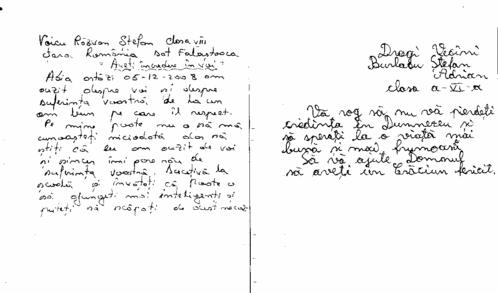 Voicu Răzvan Ștefan clasa VIII
Țara România sat Fălăștoaca
"Aveți încredere în voi"
Abia astăzi 05-12-2008 am
auzit despre voi și despre
suferința voastră de la un
om bun pe care îl respect.
Pe mine poate nu o să mă
cunoașteți niciodată dar să
știți că eu am auzit de voi
și îmi pare rău de
suferința voastră. la
școală și învățați că poate o
să ajungeți mai inteligenți și
puteți să scăpați de
Dragi Vecini
Burlacu Ștefan
Adrian
clasa a-XI-a
Vă rog să nu vă pierdeți
credința în Dumnezeu și
să sperați la o viață mai
bună și mai frumoasă
Să vă ajute Domnul
să aveți un Crăciun fericit.